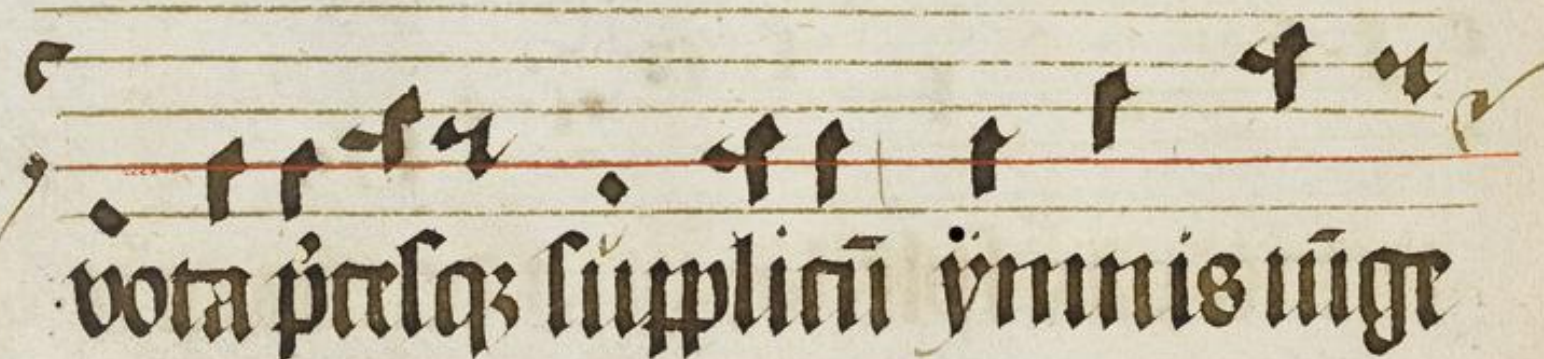 vota p̄cesqꝫ suppliciū ymnis iūge